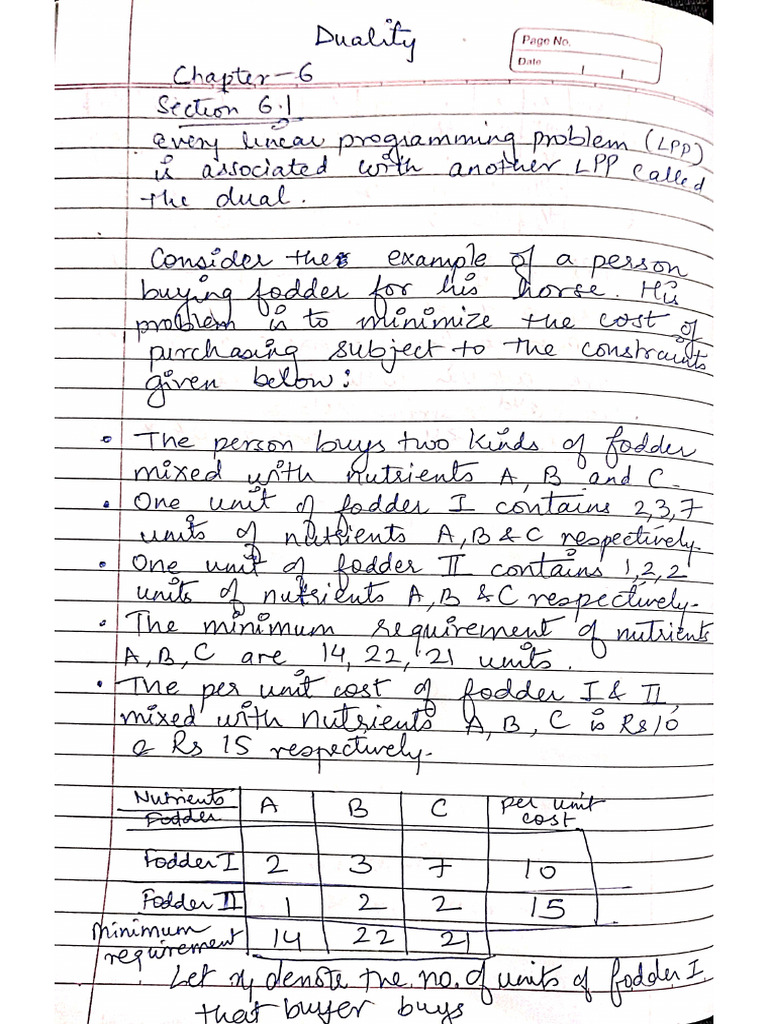 Duality
Page No.
Date
Chapter-6
Section 6.1
every linear programming problem (LPP)
is associated with another LPP called
the dual.
Consider the example of a person
buying fodder for his horse. His
problem is to minimize the cost of
purchasing subject to the constraints
given below:
• The person buys two kinds of fodder
mixed with nutrients A, B and C.
• One unit of fodder I contains 2,3,7
units of nutrients A, B & C respectively.
• One unit of fodder II contains 1,2,2
units of nutrients A, B & C respectively.
• The minimum requirement of nutrients
A, B, C are 14, 22, 21 units.
• The per unit cost of fodder I & II,
mixed with nutrients A, B, C is Rs 10
& Rs 15 respectively.
Nutrients A B C per unit
Fodder cost
Fodder I 2 3 7 10
Fodder II 1 2 2 15
minimum
requirement 14 22 21
Let x₁ denote the no. of units of fodder I
that buyer buys